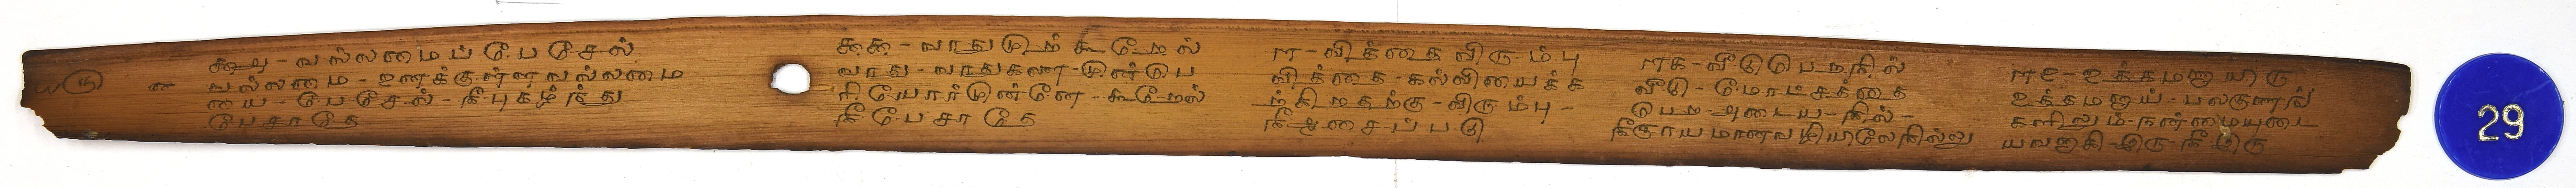 ௰௫
௯௮-வல்லமைப் பேசேல்
வல்லமை-உனக்குள்ள வல்லமை
யை-பேசேல்-நீ புகழ்ந்து
பேசாதே
௯௯-வாதுமுற் கூறேல்
வாது-வாதுகளை-முன்பெ
ரியோர்முன்னே-கூறேல்
நீ பேசாதே
௱-வித்தை விரும்பு
வித்தை-கல்வியைக்க
ற்கிறதற்கு-விரும்பு-
நீ ஆசைப்படு
௱௧-வீடுபெறநில்
வீடு-மோட்சத்தை
பெற-அடைய-நில்-
நீ ஞாயமானவழியிலேநில்லு
௱௨-உத்தமனாயிரு
உத்தமனாய்-பலகுணங்
களிலும்-நன்மையுடை
யவனாகி-இரு-நீ இரு
29